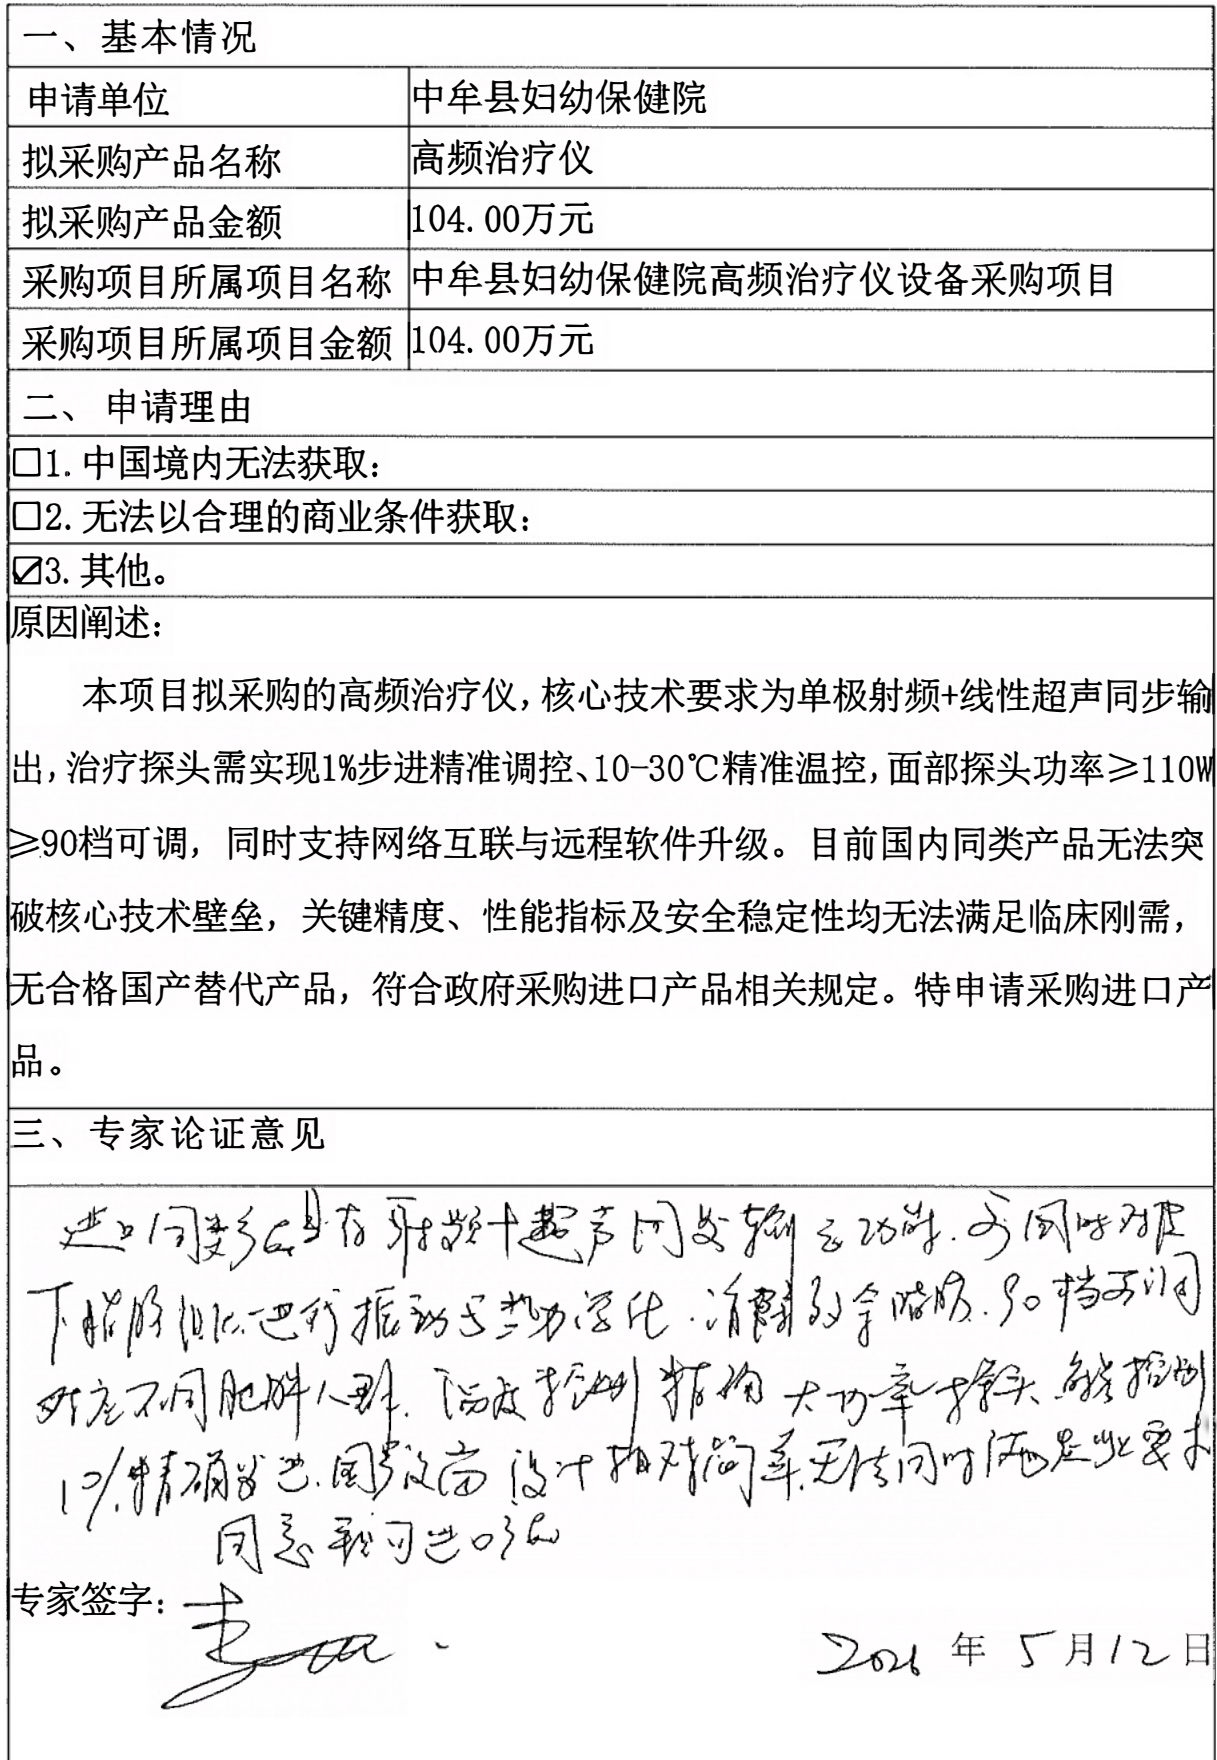 一、基本情况
申请单位 中牟县妇幼保健院
拟采购产品名称 高频治疗仪
拟采购产品金额 104.00万元
采购项目所属项目名称 中牟县妇幼保健院高频治疗仪设备采购项目
采购项目所属项目金额 104.00万元
二、 申请理由
□1.中国境内无法获取：
□2.无法以合理的商业条件获取：
☑3.其他。
原因阐述：
本项目拟采购的高频治疗仪，核心技术要求为单极射频+线性超声同步输
出，治疗探头需实现1%步进精准调控、10-30℃精准温控，面部探头功率≥110W
≥90档可调，同时支持网络互联与远程软件升级。目前国内同类产品无法突
破核心技术壁垒，关键精度、性能指标及安全稳定性均无法满足临床刚需，
无合格国产替代产品，符合政府采购进口产品相关规定。特申请采购进口产
品。
三、专家论证意见
进口同类产品具有射频+超声同步输出功能.可同时对皮
下脂肪组织进行振动与热动溶化.消除多余脂肪.90档可调
对应不同肥胖人群.温度控制精确 大功率探头 能控制
1%精确步进.国产设计相对简单.无法同时满足此要求
同意采购进口产品
专家签字：
2026 年 5 月 12 日